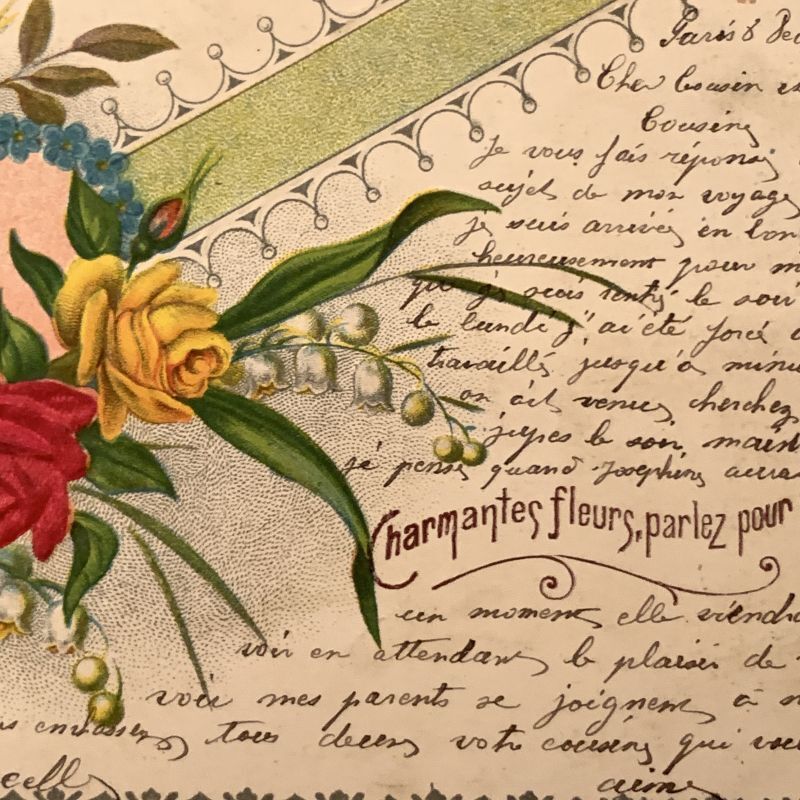 Paris 8 Dec
Cher Cousin
Cousine
Je vous fais réponse
sujet de mon voyage
je suis arrivée en bon
heureusement pour m
que je suis rentré le soir
le lundi j'ai été forcé
travaillé jusqu'à minu
on ait venue cherchez
jupes le soir maint
je pense quand Josephine aura
Charmantes fleurs, parlez pour
un moment elle viendra
voir en attendant le plaisir de
voir mes parents se joignent à
embrasser tous deux votre cousine qui vous
aime